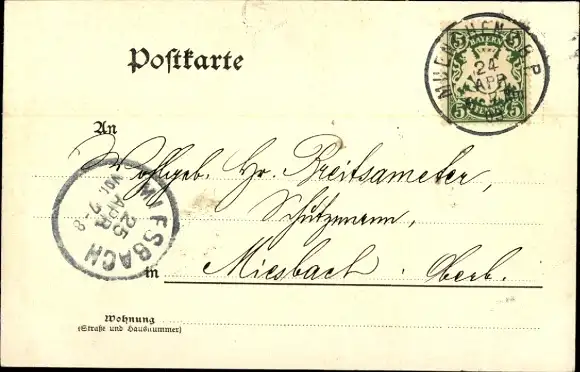 Postkarte
5 BAYERN 5
5 PFENNIG 5
MUENCHEN B.P.
24
APR
An
Wohlgeb. Hr. Breitsameter,
Schutzmann,
in Miesbach. Oberb.
MIESBACH
25
APR
VOR. 7-8
Wohnung
(Straße und Hausnummer)